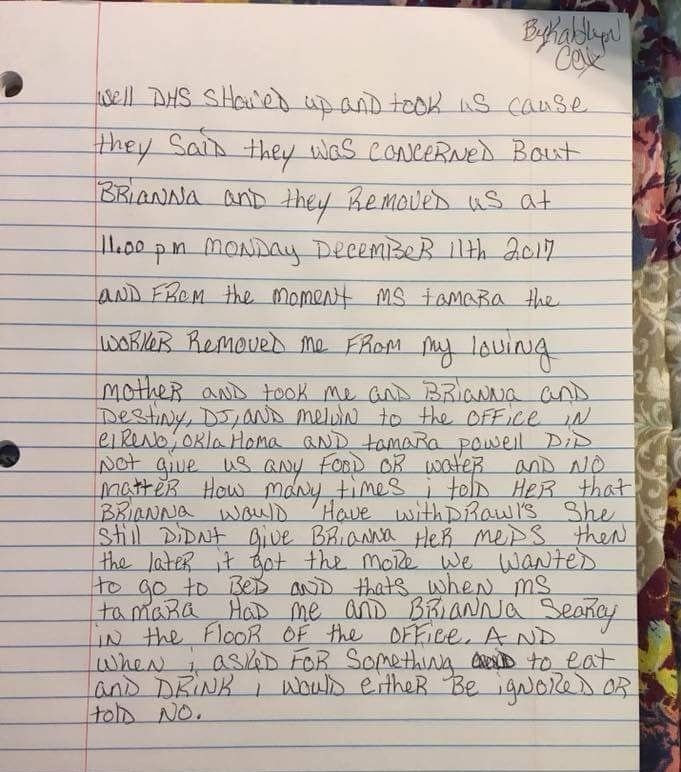 By Kaitlyn
Cox
well DHS SHOWED up AND took us cause
they SAID they WAS CONCERNED BOUT
BRIANNA AND they REMOVED us at
11:00 pm MONDAY DECEMBER 11th 2017
AND FROM the moment MS tamaRa the
WORKER Removed me FROM my loving
motheR AND took me AND BRIANNA AND
DestiNy, DJ, AND melvin to the OFFice iN
el ReNo, oklaHoma AND tamaRa powell DiD
Not give us any FOOD OR wateR AND NO
matteR How many times i tolD HeR that
BRIANNA woulD Have withDRawl's She
Still DiDNt give BRIANNA HeR meDS then
the lateR it got the moRe we waNteD
to go to BeD AND thats wheN ms
tamaRa HaD me AND BRIANNA Searcy
iN the FlooR OF the OFFice. AND
wheN i asKeD FoR Something to eat
and DRiNK i woulD eitheR Be igNoReD OR
tolD NO.